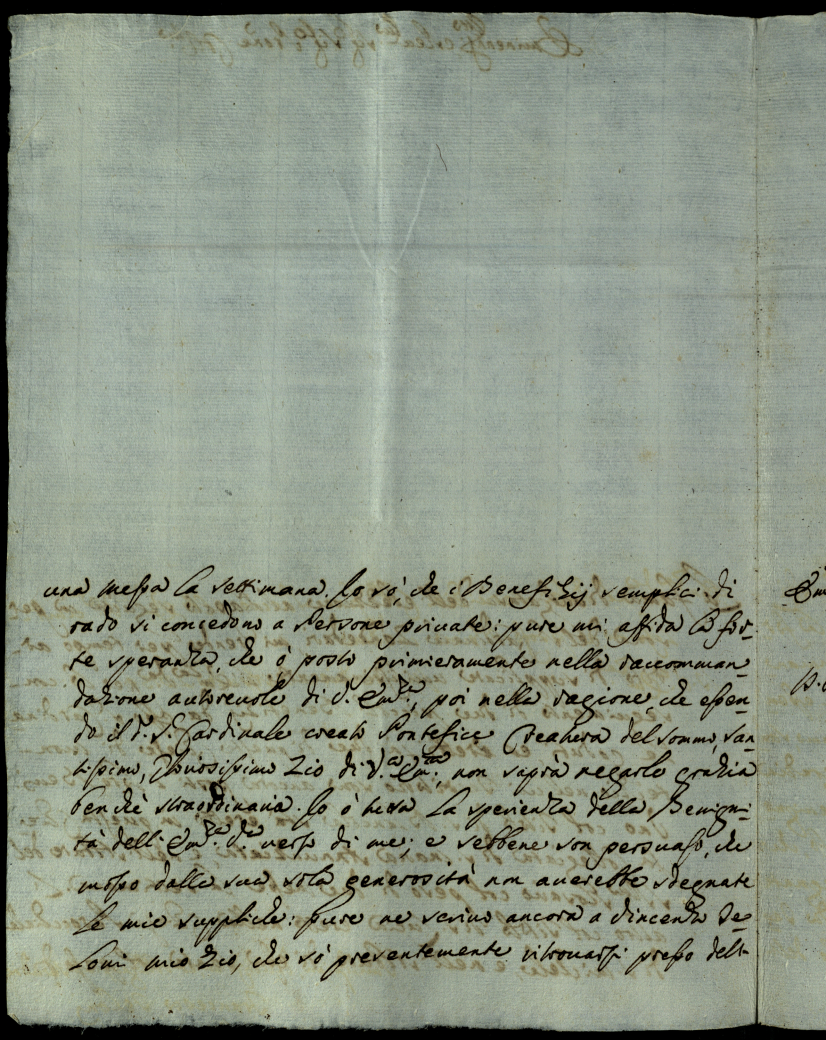 una messa la settimana. Io sò, che i Benefizij semplici di
rado si concedono a Persone private: pure mi affida la for-
te speranza, che ò posto primieramente nella raccomman-
dazione autorevole di V. Em.za, poi nella ragione, che essen-
do il d.o S.r Cardinale creato Pontefice Creatura del sommo, san-
tissimo, Zio di V.a Em.za, non saprà negarlo grazia
benchè straordinaria. Io ò tutta la sperienza della Benigni-
tà dell' Em.za V.a verso di me; e sebbene son persuaso, che
mosso dalla sua sola generosità non averebbe sdegnate
le mie suppliche: pure ne scrivo ancora a Vincenzo
mio Zio, che sò presentemente ritrovarsi presso dell-